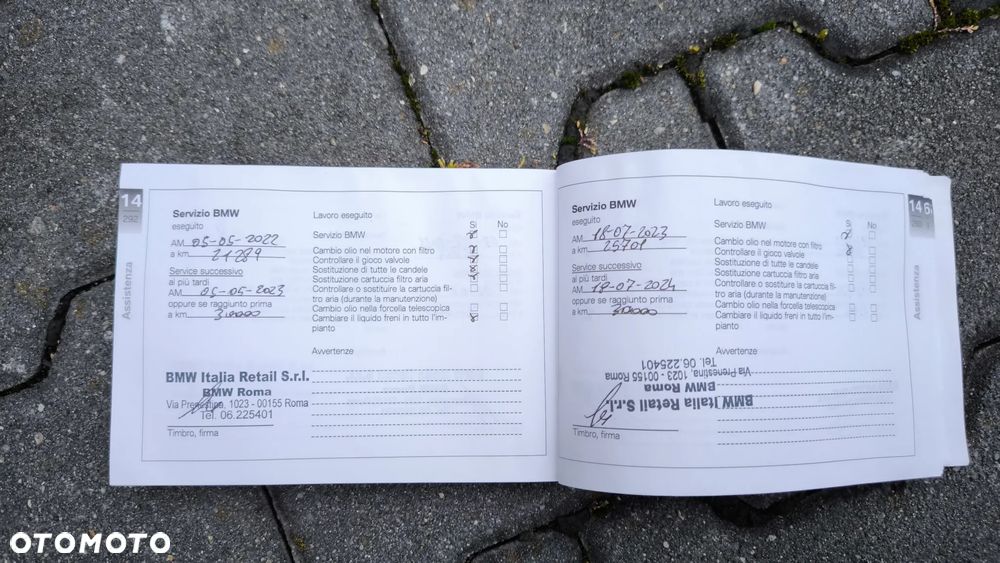 14
292
Assistenza
Servizio BMW
eseguito
AM 05-05-2022
a km 21289
Service successivo
al più tardi
AM 05-05-2023
oppure se raggiunto prima
a km
BMW Italia Retail S.r.l.
BMW Roma
Via Prenestina, 1023 - 00155 Roma
Tel. 06.225401
Timbro, firma
Lavoro eseguito
Sì No
Servizio BMW
Cambio olio nel motore con filtro
Controllare il gioco valvole
Sostituzione di tutte le candele
Sostituzione cartuccia filtro aria
Controllare o sostituire la cartuccia fil-
tro aria (durante la manutenzione)
Cambio olio nella forcella telescopica
Cambiare il liquido freni in tutto l'im-
pianto
Avvertenze
Servizio BMW
eseguito
AM 18-07-2023
a km 25701
Service successivo
al più tardi
AM 17-07-2024
oppure se raggiunto prima
a km
BMW Italia Retail S.r.l.
BMW Roma
Via Prenestina, 1023 - 00155 Roma
Tel. 06.225401
Timbro, firma
Lavoro eseguito
Sì No
Servizio BMW
Cambio olio nel motore con filtro
Controllare il gioco valvole
Sostituzione di tutte le candele
Sostituzione cartuccia filtro aria
Controllare o sostituire la cartuccia fil-
tro aria (durante la manutenzione)
Cambio olio nella forcella telescopica
Cambiare il liquido freni in tutto l'im-
pianto
Avvertenze
14
Assistenza
OTOMOTO